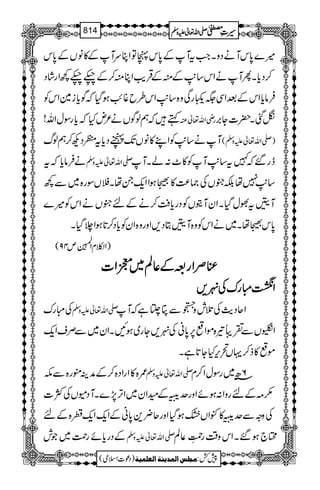 سیرتِ مصطفیٰ صلی اللہ تعالیٰ علیہ وسلم 814
میرے پاس آنے دو۔ جب یہ آپ کے پاس پہنچا تو اپنا سر آپ کے کانوں کے پاس
کر دیا۔ پھر آپ نے اس سانپ کے منہ کے قریب اپنا منہ کر کے چپکے چپکے کچھ ارشاد
فرمایا اس کے بعد اسی جگہ یکبارگی وہ سانپ اس طرح غائب ہو گیا گویا زمین اس کو
نگل گئی۔ حضرت جابر رضی اللہ تعالیٰ عنہ کہتے ہیں کہ ہم لوگوں نے عرض کیا کہ یا رسول اللہ!
(صلی اللہ تعالیٰ علیہ وسلم) آپ نے سانپ کو اپنے کانوں تک پہنچنے دیا یہ منظر دیکھ کر ہم لوگ
ڈر گئے کہ کہیں یہ سانپ آپ کو کاٹ نہ لے۔ آپ صلی اللہ تعالیٰ علیہ وسلم نے فرمایا کہ یہ
سانپ نہیں تھا بلکہ جنوں کی جماعت کا بھیجا ہوا ایک جن تھا۔ فلاں سورہ میں سے کچھ
آیتیں یہ بھول گیا۔ ان آیتوں کو دریافت کرنے کے لئے جنوں نے اس کو میرے
پاس بھیجا تھا۔ میں نے اس کو وہ آیتیں بتا دیں اور وہ ان کو یاد کرتا ہوا چلا گیا۔
(الکلام المبین ص ۹۴)
عناصر اربعہ کے عالم میں معجزات
انگشت مبارک کی نہریں
احادیث کی تلاش و جستجو سے پتا چلتا ہے کہ آپ صلی اللہ تعالیٰ علیہ وسلم کی مبارک
انگلیوں سے تقریباً تیرہ مواقع پر پانی کی نہریں جاری ہوئیں۔ ان میں سے صرف ایک
موقع کا ذکر یہاں تحریر کیا جاتا ہے۔
۶ھ میں رسول اکرم صلی اللہ تعالیٰ علیہ وسلم عمرہ کا ارادہ کر کے مدینہ منورہ سے مکہ
مکرمہ کے لئے روانہ ہوئے اور حدیبیہ کے میدان میں اتر پڑے۔ آدمیوں کی کثرت
کی وجہ سے حدیبیہ کا کنواں خشک ہو گیا اور حاضرین پانی کے ایک ایک قطرہ کے لئے
محتاج ہو گئے۔ اس وقت رحمتِ عالم صلی اللہ تعالیٰ علیہ وسلم کے دریائے رحمت میں جوش
پیش کش: مجلس المدینۃ العلمیۃ (دعوتِ اسلامی)